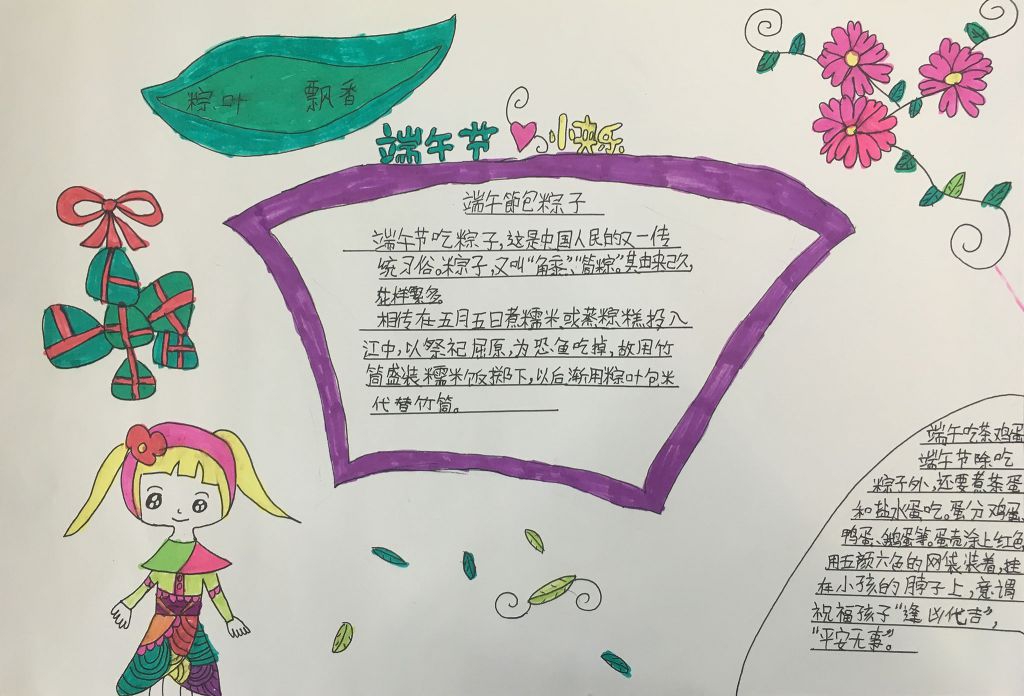 粽叶 飘香
端午节 小快乐
端午節包粽子
端午节吃粽子,这是中国人民的又一传
统习俗。粽子,又叫“角黍”、“筒粽”。其由来已久,
花样繁多。
相传在五月五日煮糯米或蒸粽糕投入
江中,以祭祀屈原,为恐鱼吃掉,故用竹
筒盛装糯米饭掷下,以后渐用粽叶包米
代替竹筒。
端午吃茶鸡蛋
端午节除吃
粽子外,还要煮茶蛋
和盐水蛋吃。蛋分鸡蛋、
鸭蛋、鹅蛋等。蛋壳涂上红色
用五颜六色的网袋装着,挂
在小孩的脖子上,意谓
祝福孩子“逢凶化吉”,
“平安无事”。